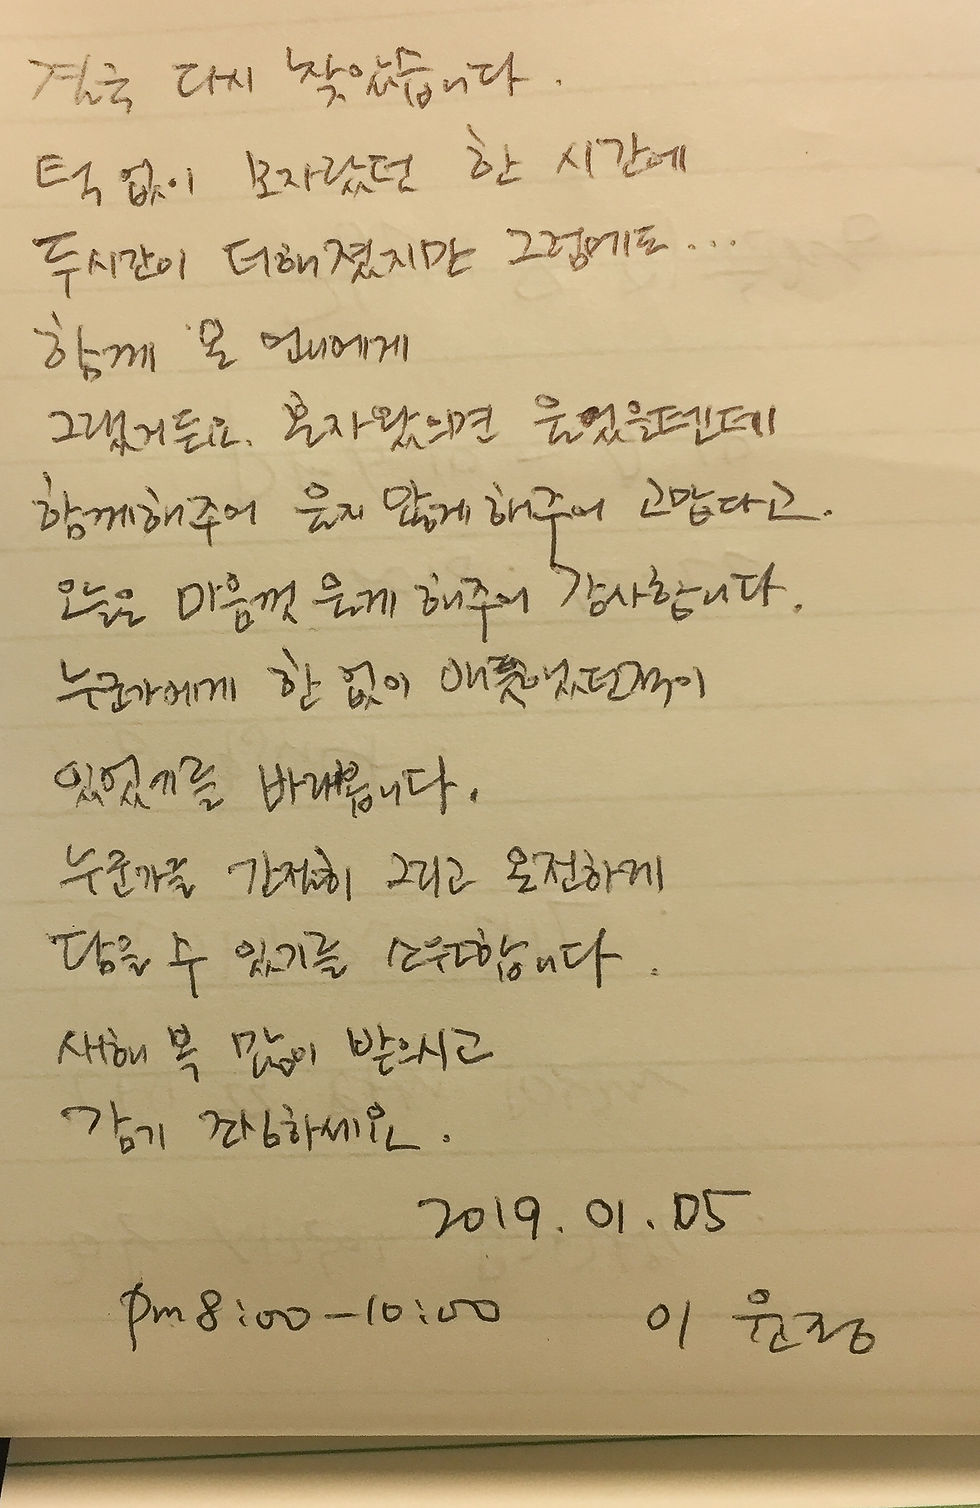 결국 다시 찾았습니다.
턱 없이 모자랐던 한 시간에
두시간이 더해졌지만 그럼에도...
함께 온 언니에게
그랬거든요. 혼자왔으면 울었을텐데
함께해주어 울지 않게 해주어 고맙다고.
오늘은 마음껏 울게 해주어 감사합니다.
누군가에게 한 없이 애틋했던적이
있었기를 바래봅니다.
누군가를 간절히 그리고 온전하게
담을 수 있기를 소원합니다.
새해 복 많이 받으시고
감기 조심하세요.
2019.01.05
pm8:00-10:00 이 윤정